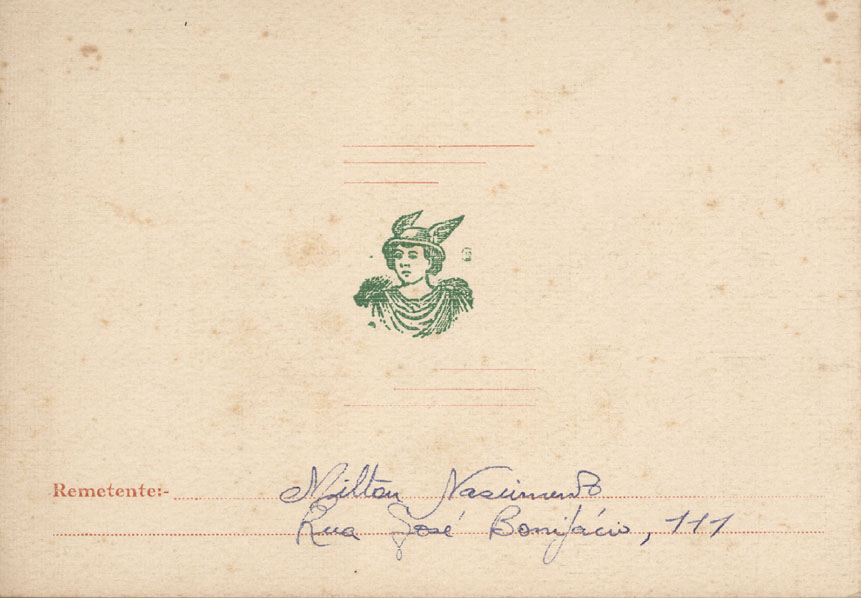 Remetente:- Milton Nascimento
Rua José Bonifácio, 111